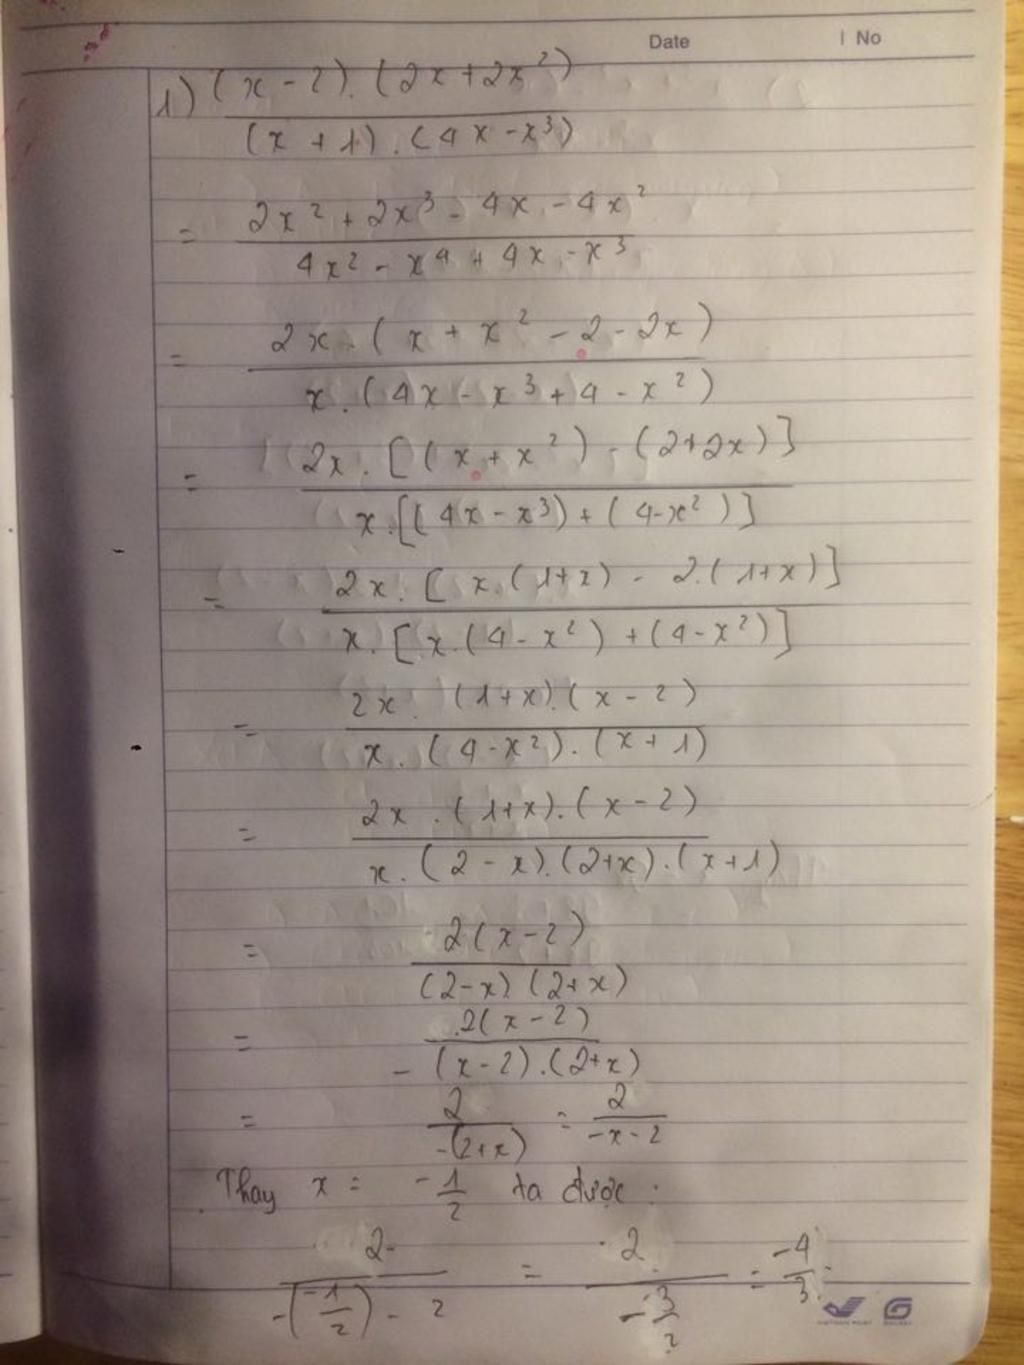 Date | No
1) (x - 2).(2x + 2x²) / (x + 1).(4x - x³)
= 2x² + 2x³ - 4x - 4x² / 4x² - x⁴ + 4x - x³
= 2x.(x + x² - 2 - 2x) / x.(4x - x³ + 4 - x²)
= 2x.[(x + x²) - (2+2x)] / x.[(4x - x³) + (4-x²)]
= 2x.[x.(1+x) - 2.(1+x)] / x.[x.(4 - x²) + (4 - x²)]
= 2x.(1+x).(x - 2) / x.(4 - x²).(x + 1)
= 2x.(1+x).(x - 2) / x.(2 - x).(2+x).(x+1)
= 2(x - 2) / (2-x).(2+x)
= 2(x - 2) / -(x - 2).(2+x)
= 2 / -(2+x) = 2 / -x - 2
Thay x = -1/2 ta được :
2 / -(-1/2) - 2 = 2 / -3/2 = -4/3